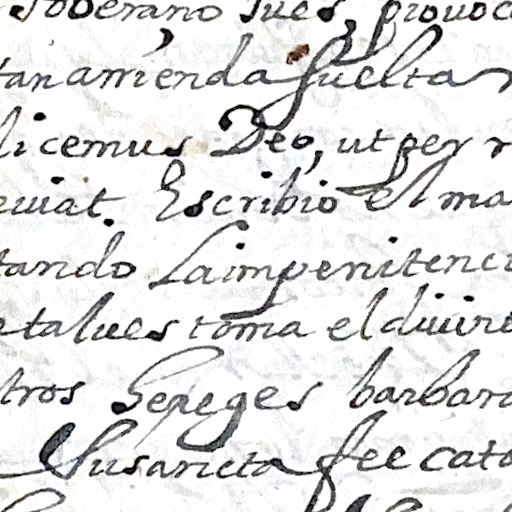 soberano Jues, prouoc
tan arrienda suelta
licemus Deo, ut per r
uiat. Escribio el ma
tando La impenitenci
talues toma el diuino
tros hereges barbar
su santa fee cato